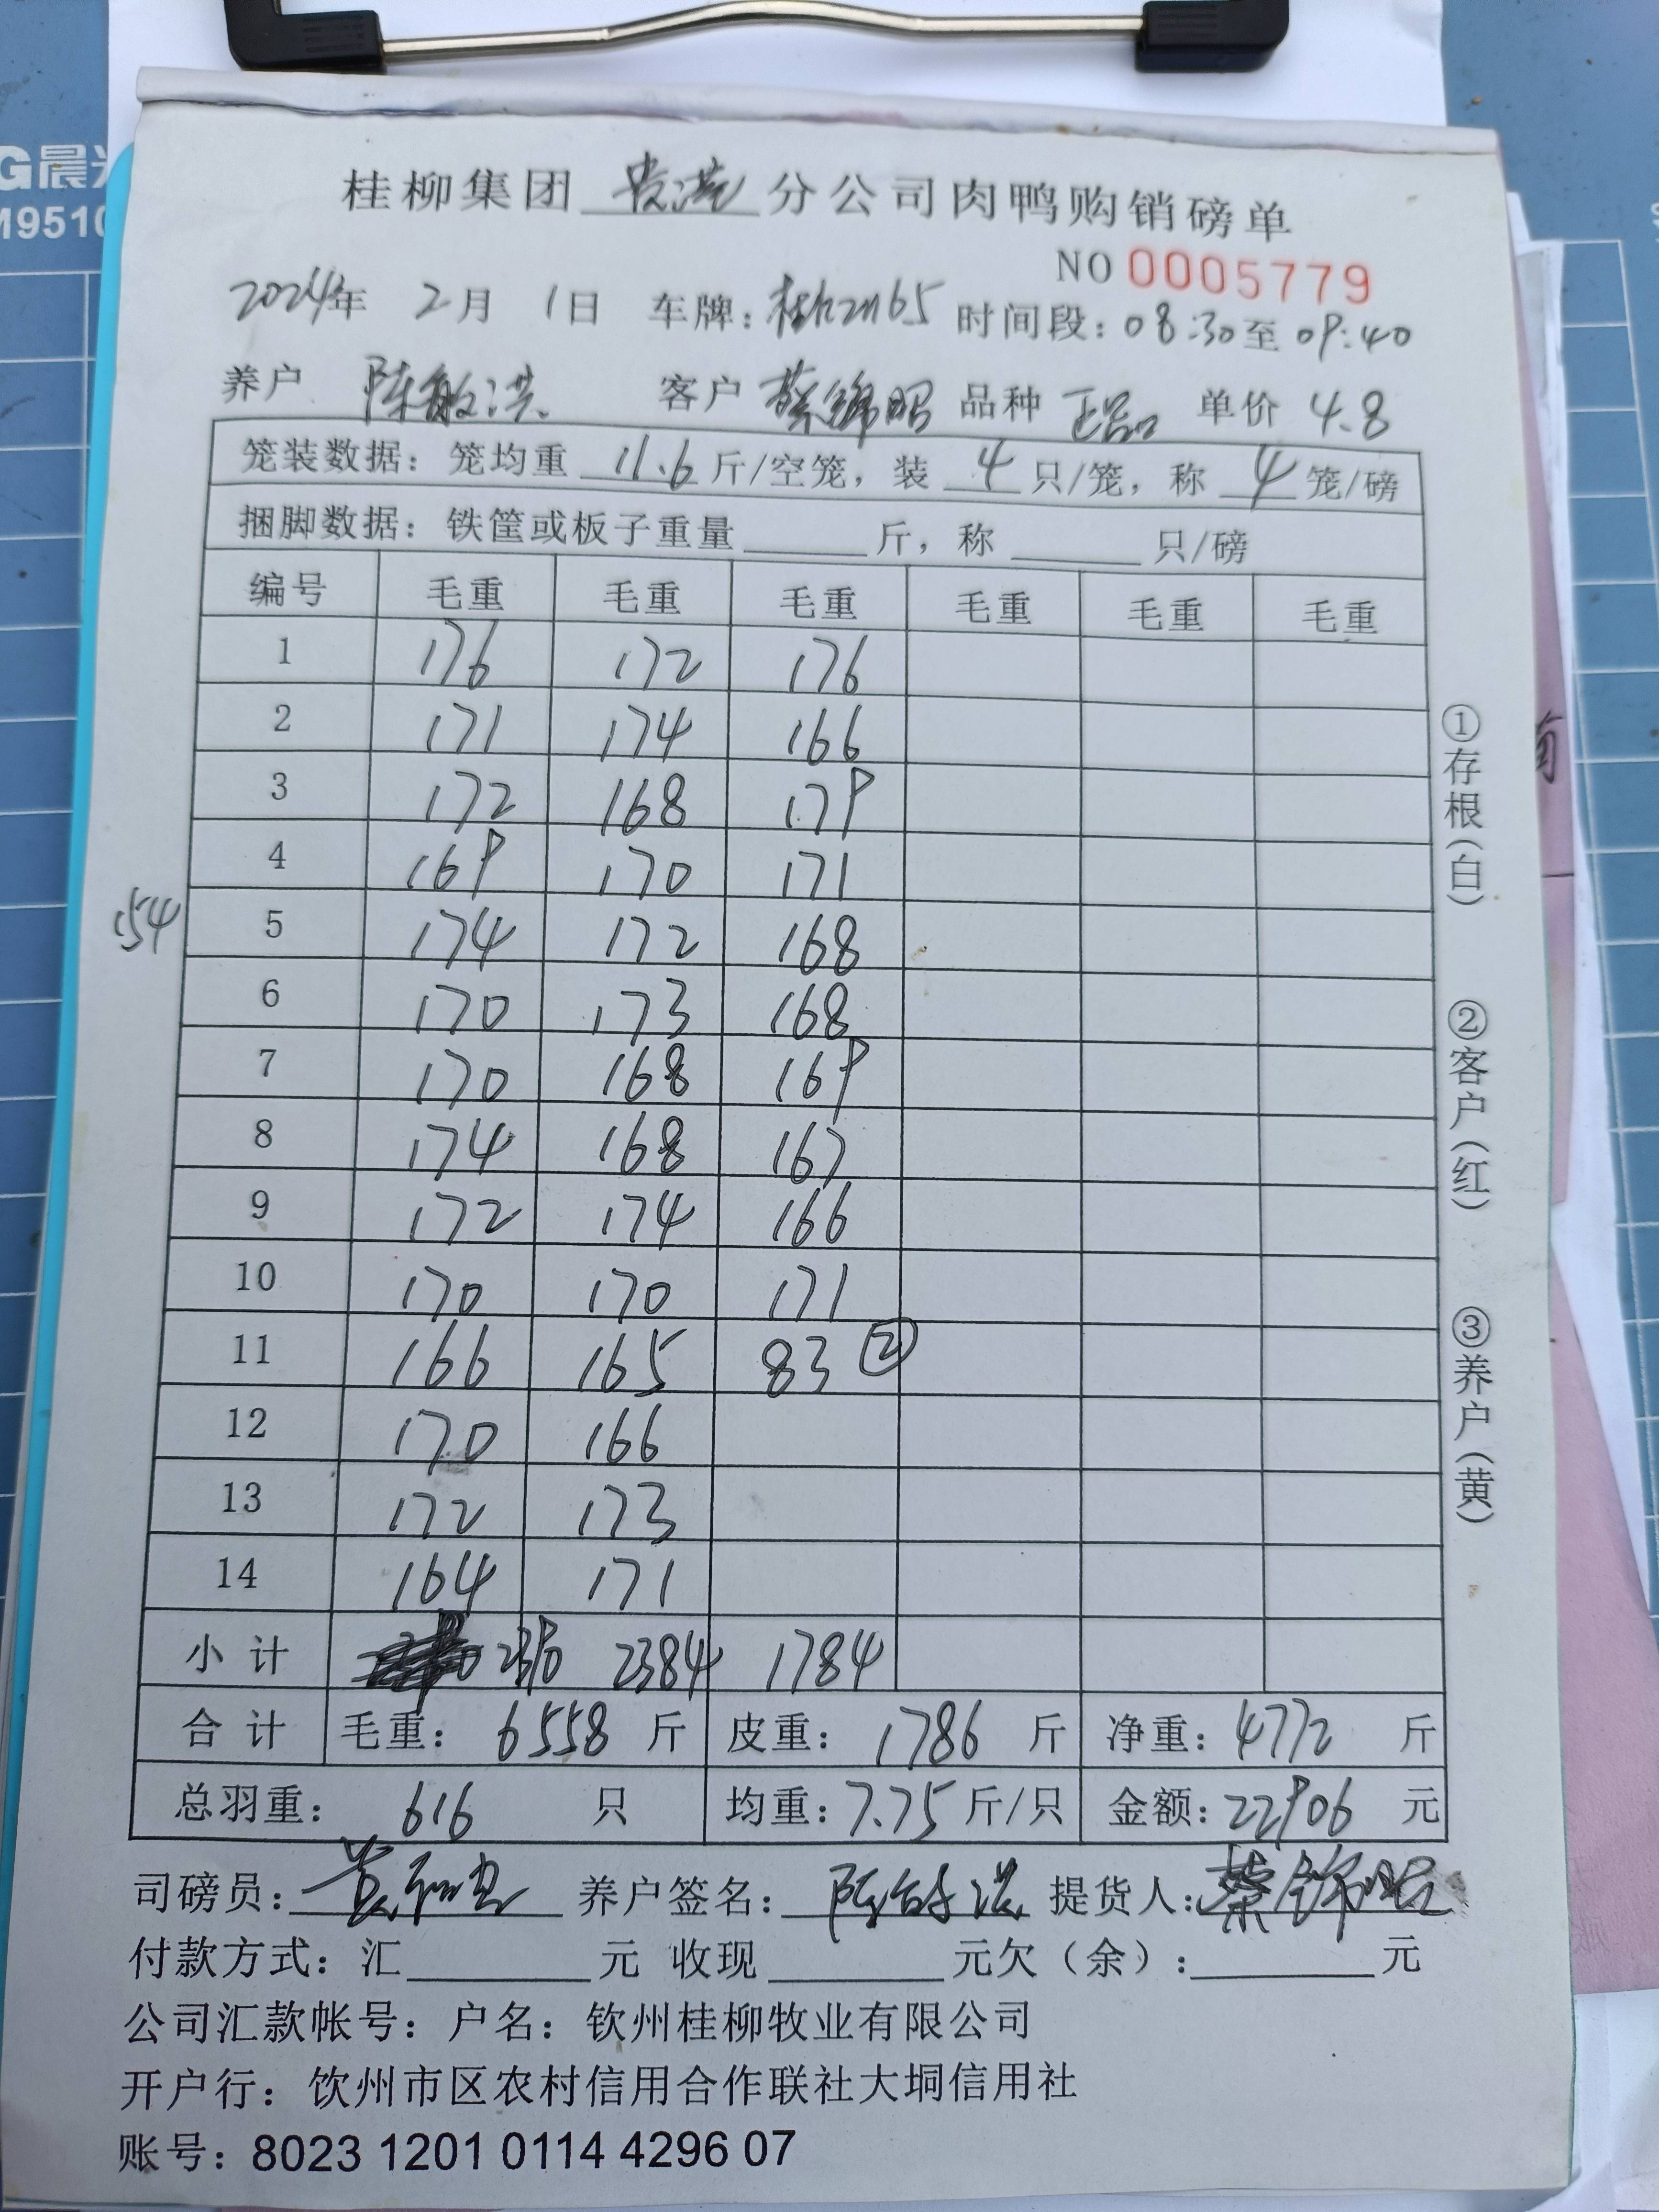 G晨光
M9510
桂柳集团 贵港 分公司肉鸭购销磅单
NO 0005779
2024年 2月 1日 车牌： 时间段：08:30至09:40
养户 陈敏洪 客户 蔡锦昭 品种 正品 单价 4.8
笼装数据：笼均重 11.6 斤/空笼，装 4 只/笼，称 4 笼/磅
捆脚数据：铁筐或板子重量 斤，称 只/磅
编号 毛重 毛重 毛重 毛重 毛重 毛重
1 176 172 176
2 171 174 166
3 172 168 179
4 169 170 171
154
5 174 172 168
6 170 173 168
7 170 168 169
8 174 168 167
9 172 174 166
10 170 170 171
11 166 165 83 ②
12 170 166
13 172 173
14 164 171
小计 2390 2384 1784
合计 毛重：6558 斤 皮重：1786 斤 净重：4772 斤
总羽重：616 只 均重：7.75 斤/只 金额：22906 元
①存根（白）
②客户（红）
③养户（黄）
司磅员： 养户签名： 提货人：蔡锦昭
付款方式：汇 元 收现 元欠（余）： 元
公司汇款帐号：户名：钦州桂柳牧业有限公司
开户行：饮州市区农村信用合作联社大垌信用社
账号：8023 1201 0114 4296 07